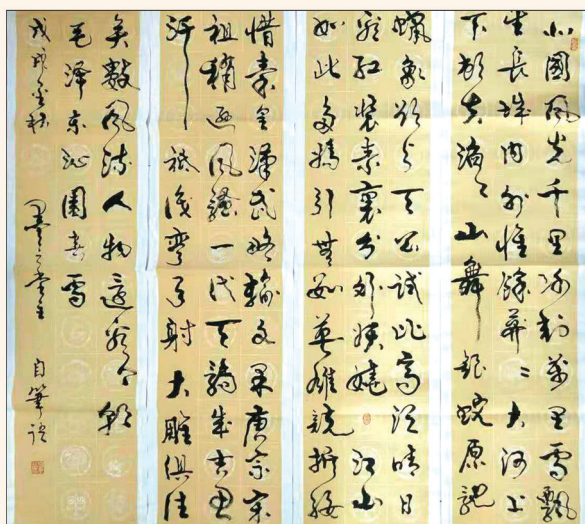 北國風光千里冰封萬里雪飄
望長城内外惟餘莽〻大河上
下頓失滔〻山舞銀蛇原馳
蠟象欲与天公試比高須晴日
看紅裝素裹分外妖嬈江山
如此多嬌引無數英雄競折腰
惜秦皇漢武略輸文采唐宗宋
祖稍遜風騷一代天驕成吉思
汗祗識彎弓射大雕俱往
矣數風流人物還看今朝
毛泽东沁園春雪
戊戌金秋 堂主 自筆